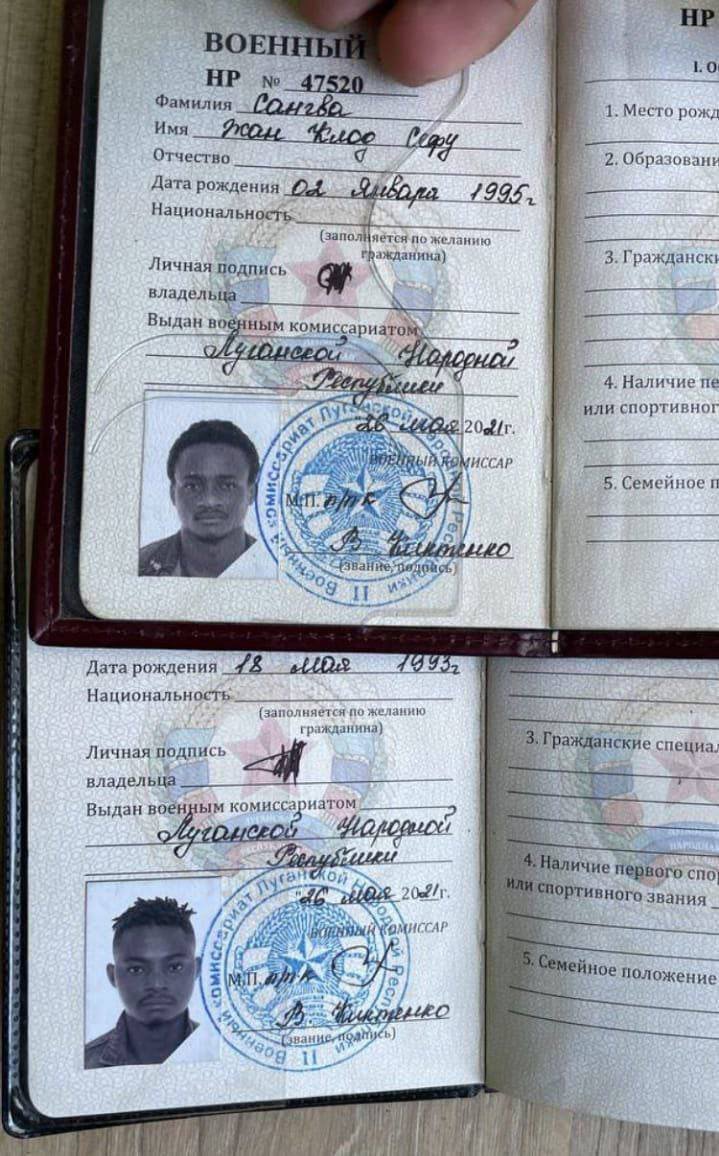 ВОЕННЫЙ
НР № 47520
Фамилия Сангва
Имя Жан Клод Сефу
Отчество
Дата рождения 02 Января 1995г
Национальность
(заполняется по желанию
гражданина)
Личная подпись
владельца
Выдан военным комиссариатом
Луганской Народной
Республики
"26 мая 2021г.
ВОЕННЫЙ КОМИССАР
М.П. п/п-к
В
(звание, подпись)
НР
1. Место рожд
2. Образовани
3. Граждански
4. Наличие пе
или спортивног
5. Семейное п
Дата рождения 18 мая 1993г
Национальность
(заполняется по желанию
гражданина)
Личная подпись
владельца
Выдан военным комиссариатом
Луганской Народной
Республики
"26 мая 2021г.
ВОЕННЫЙ КОМИССАР
М.П. п/п-к
В
(звание, подпись)
3. Гражданские специал
4. Наличие первого спор
или спортивного звания
5. Семейное положение